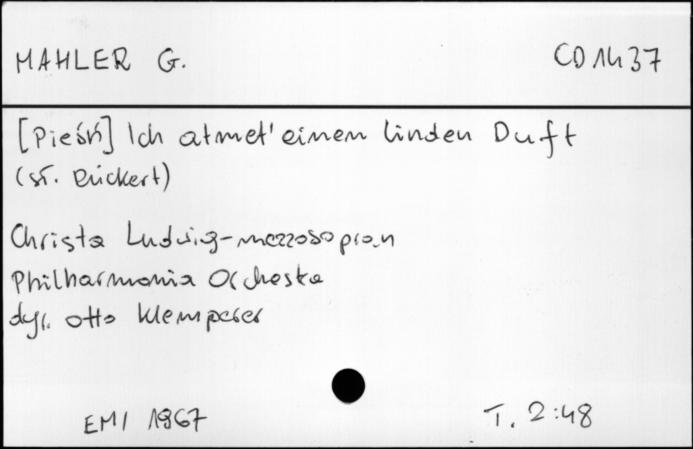 MAHLER G. CD 1437
[Pieśń] Ich atmet' einen linden Duft
(sł. Rückert)
Christa Ludwig - mezzosopran
Philharmonia Orchestra
dyr. Otto Klemperer
EMI 1967 T. 2:48